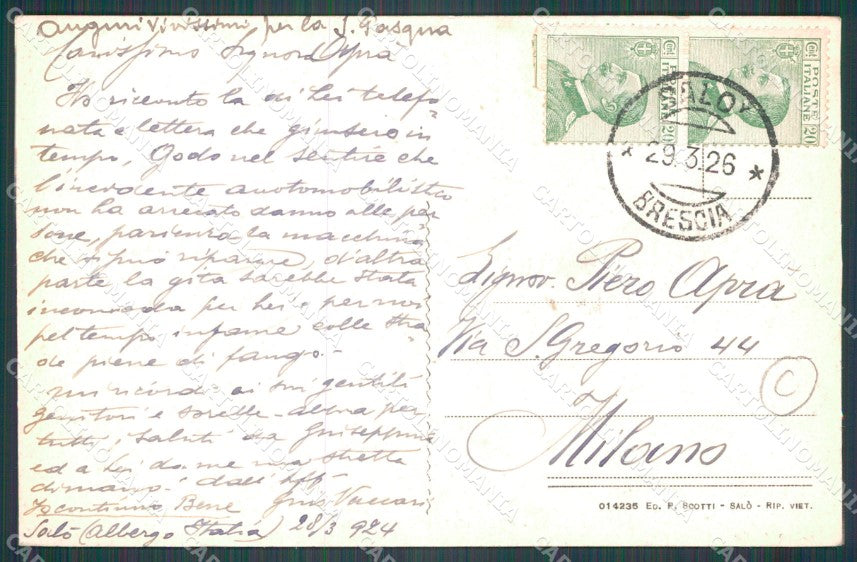 Auguri Vivissimi per la S. Pasqua
Carissimo Signor Apra
Ho ricevuto la di Lei telefo-
nata e lettera che giunsero in
tempo, Godo nel sentire che
l'incidente automobilistico
non ha arrecato danno alle per
sone, pazienza la macchina
che si può riparare, d'altra
parte la gita sarebbe stata
incomoda per Lei e per noi
pel tempo infame colle stra
de piene di fango.-
mi ricordi ai suoi gentili
genitori e sorelle - abbia per
tutti i saluti da Giuseppina
ed a Lei da me una stretta
di mano dall'aff
Vaccari
Salò (Albergo Italia) 28/3 924
POSTE ITALIANE
CEN. 20
POSTE ITALIANE
CEN. 20
SALO'
* 29.3.26 *
BRESCIA
Signor. Piero Apra
Via S. Gregorio 44
C
Milano
014235 ED. F. SCOTTI - SALÒ - RIP. VIET.
CARTOLINOMANIA